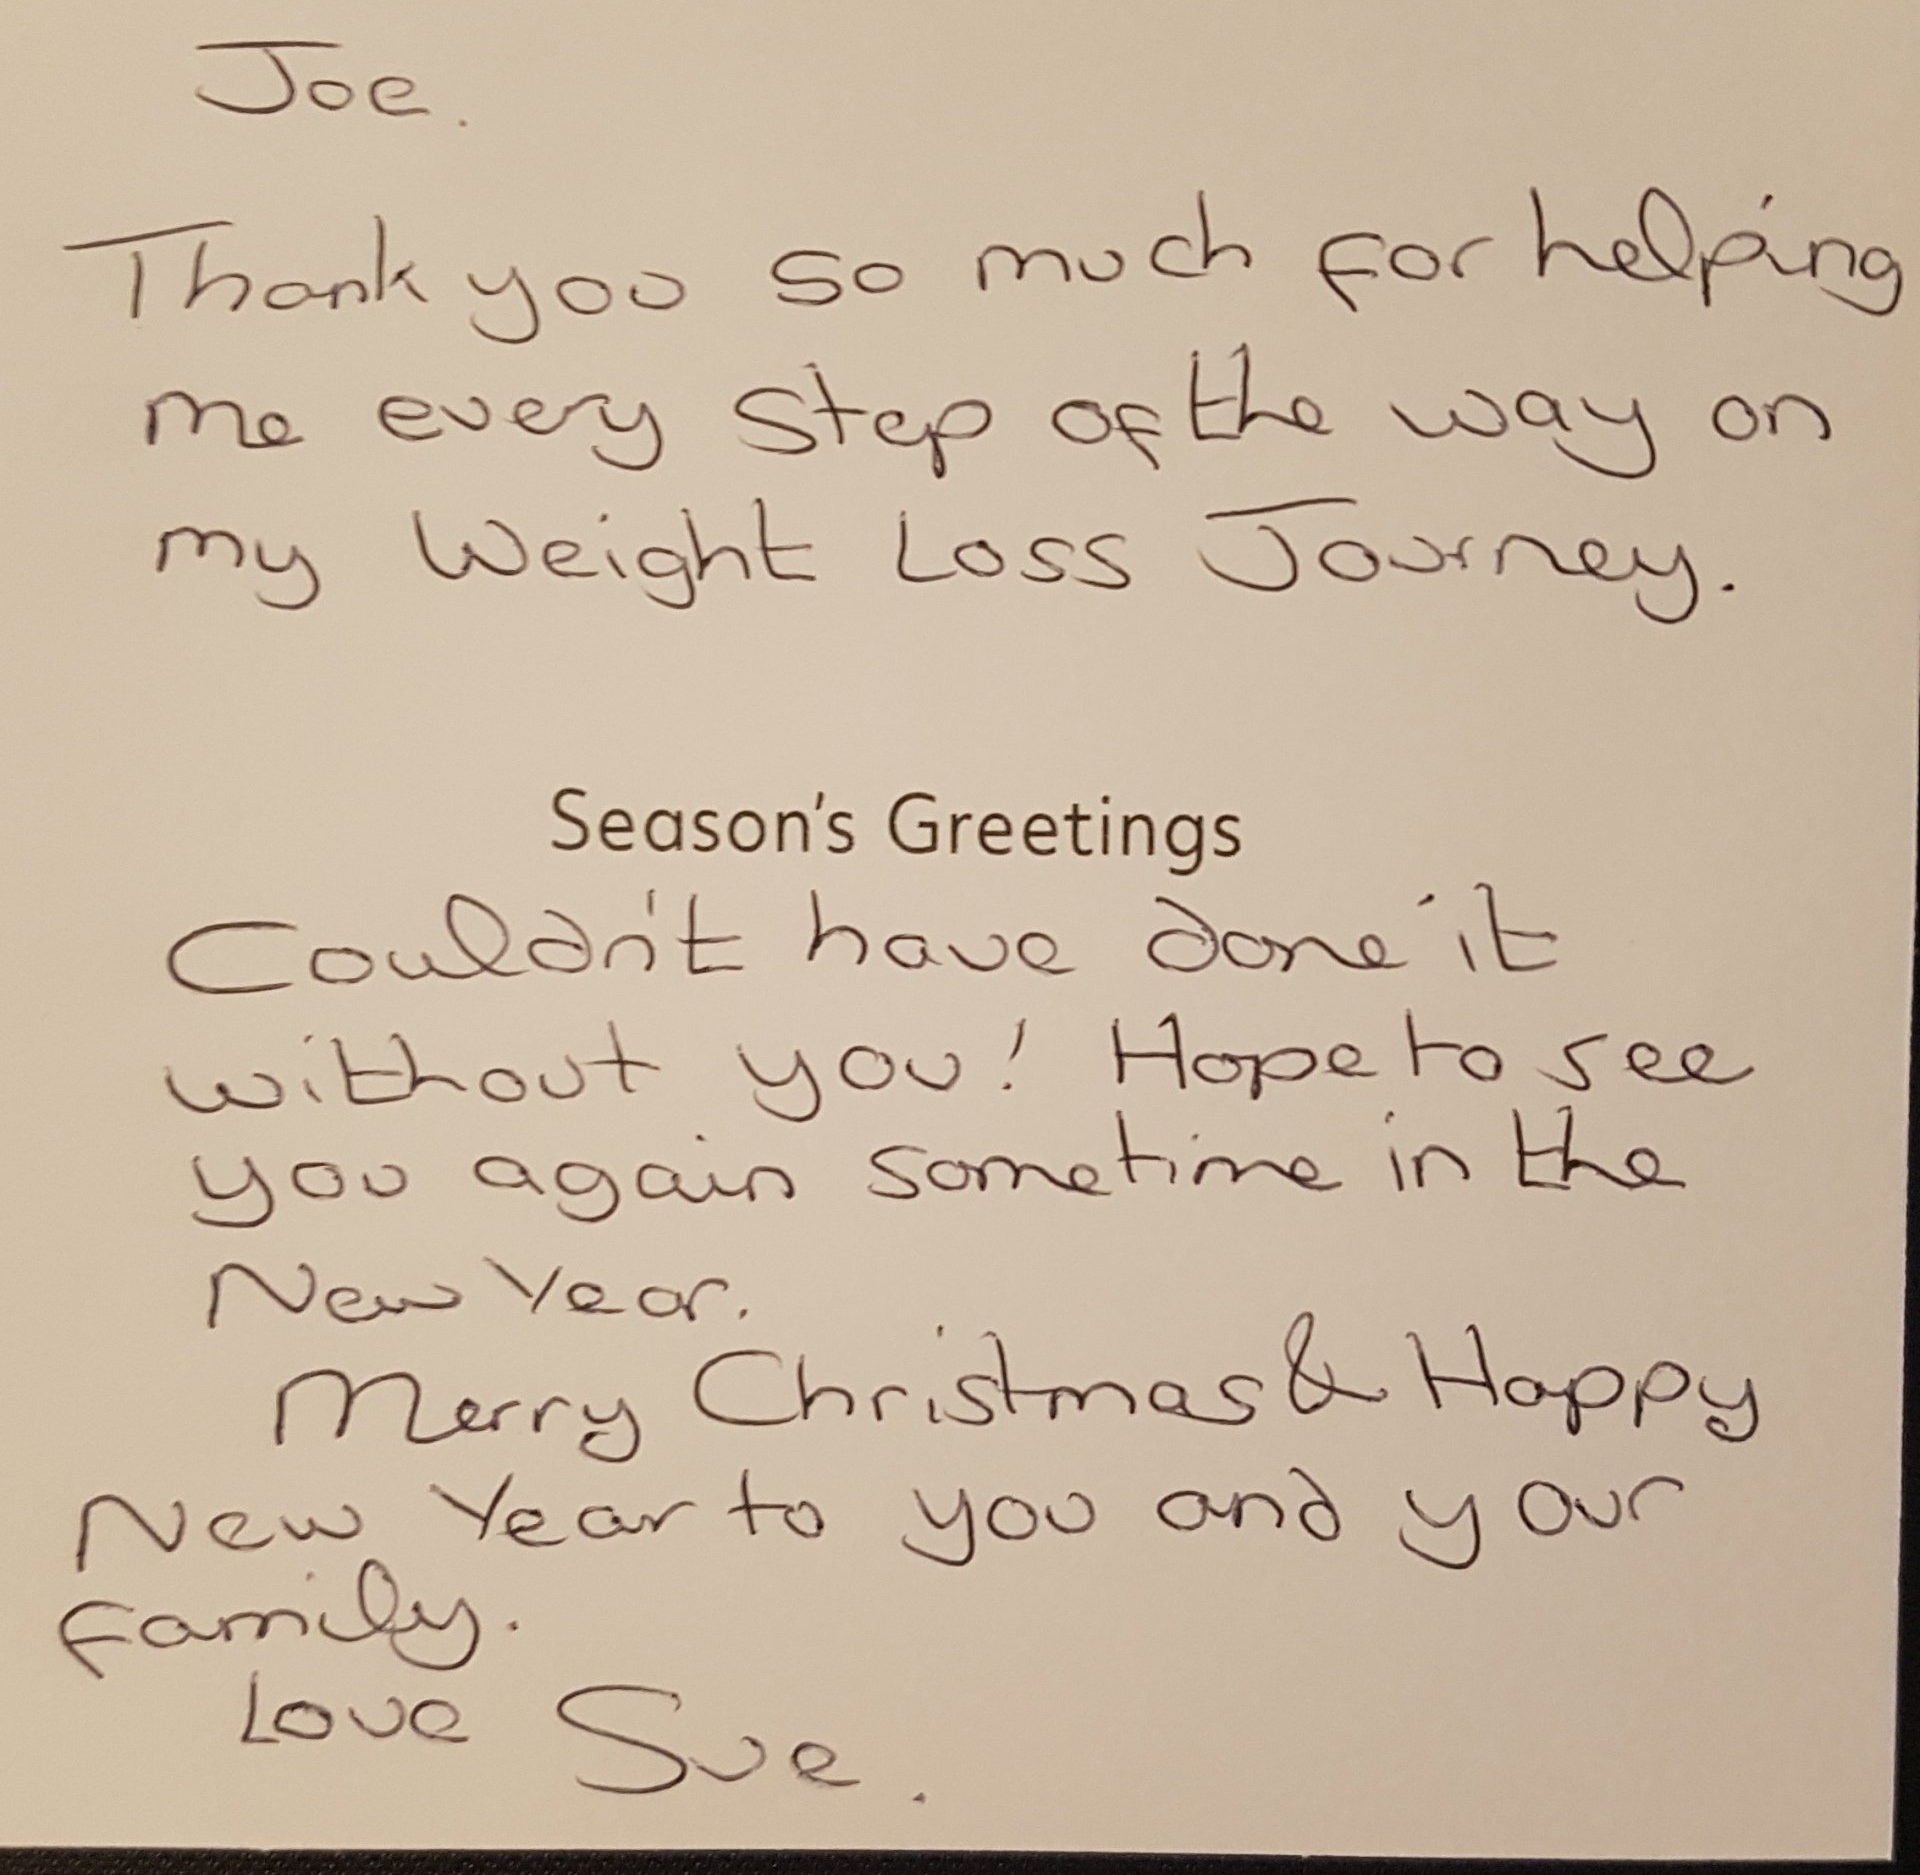 Joe.
Thank you so much for helping
me every step of the way on
my Weight Loss Journey.
Season's Greetings
Couldn't have done it
without you! Hope to see
you again sometime in the
New Year.
Merry Christmas & Happy
New Year to you and your
family.
Love Sue.